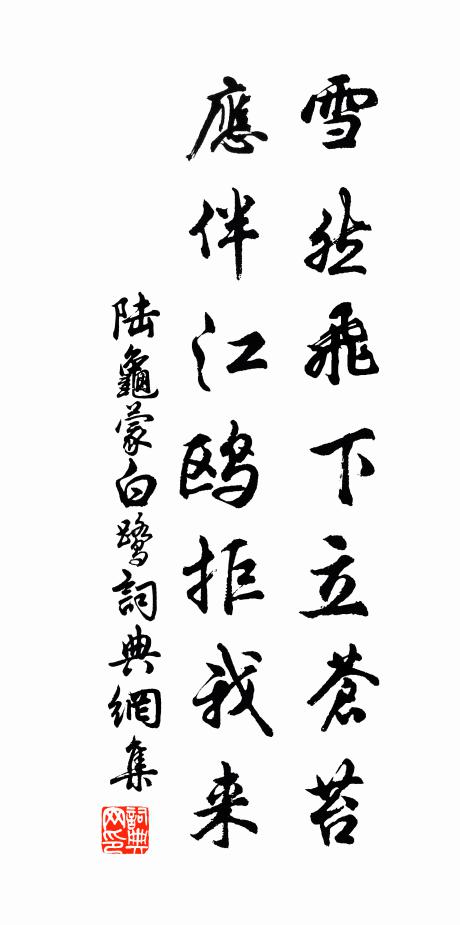 雪然飛下立蒼苔
應伴江鷗拒我来
陆龜蒙白鹭詞典網集
詞典网印